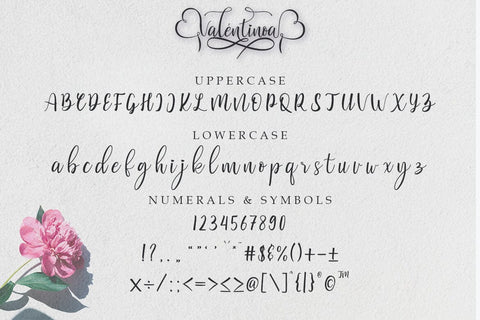 Valentinoa
UPPERCASE
ABCDEFGHIJKLMNOPQRSTUVWXYZ
LOWERCASE
abcdefghijklmnopqrstuvwxyz
NUMERALS & SYMBOLS
1234567890
!?..„ “”‘’ #$&%()+−±
×÷/:;<=>≤≥@[\]^{|}®©™